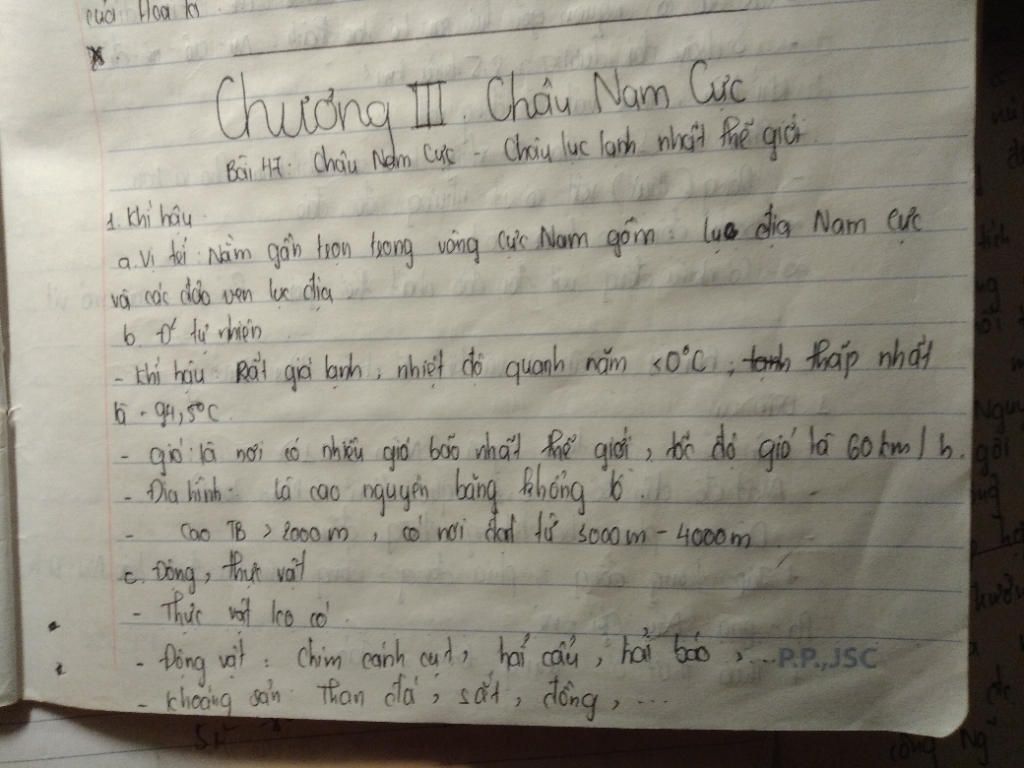 của Hoa kì
Chương III. Châu Nam Cực
Bài 47: Châu Nam Cực - Châu lục lạnh nhất thế giới
1. Khí hậu
a. Vị trí: Nằm gần trọn trong vòng cực Nam gồm: lục địa Nam Cực
và các đảo ven lục địa
b. Đ² tự nhiên
- Khí hậu: Rất giá lạnh, nhiệt độ quanh năm <0°C, thấp nhất
là -94,5°C
- gió: là nơi có nhiều gió bão nhất thế giới, tốc độ gió là 60km/h.
- Địa hình: là cao nguyên băng khổng lồ.
- cao TB > 2000m, có nơi đạt từ 3000m - 4000m
c. Động, thực vật
- Thực vật ko có
- Động vật: chim cánh cụt, hải cẩu, hải báo, ...
- khoáng sản: Than đá, sắt, đồng, ...
P.P.,JSC